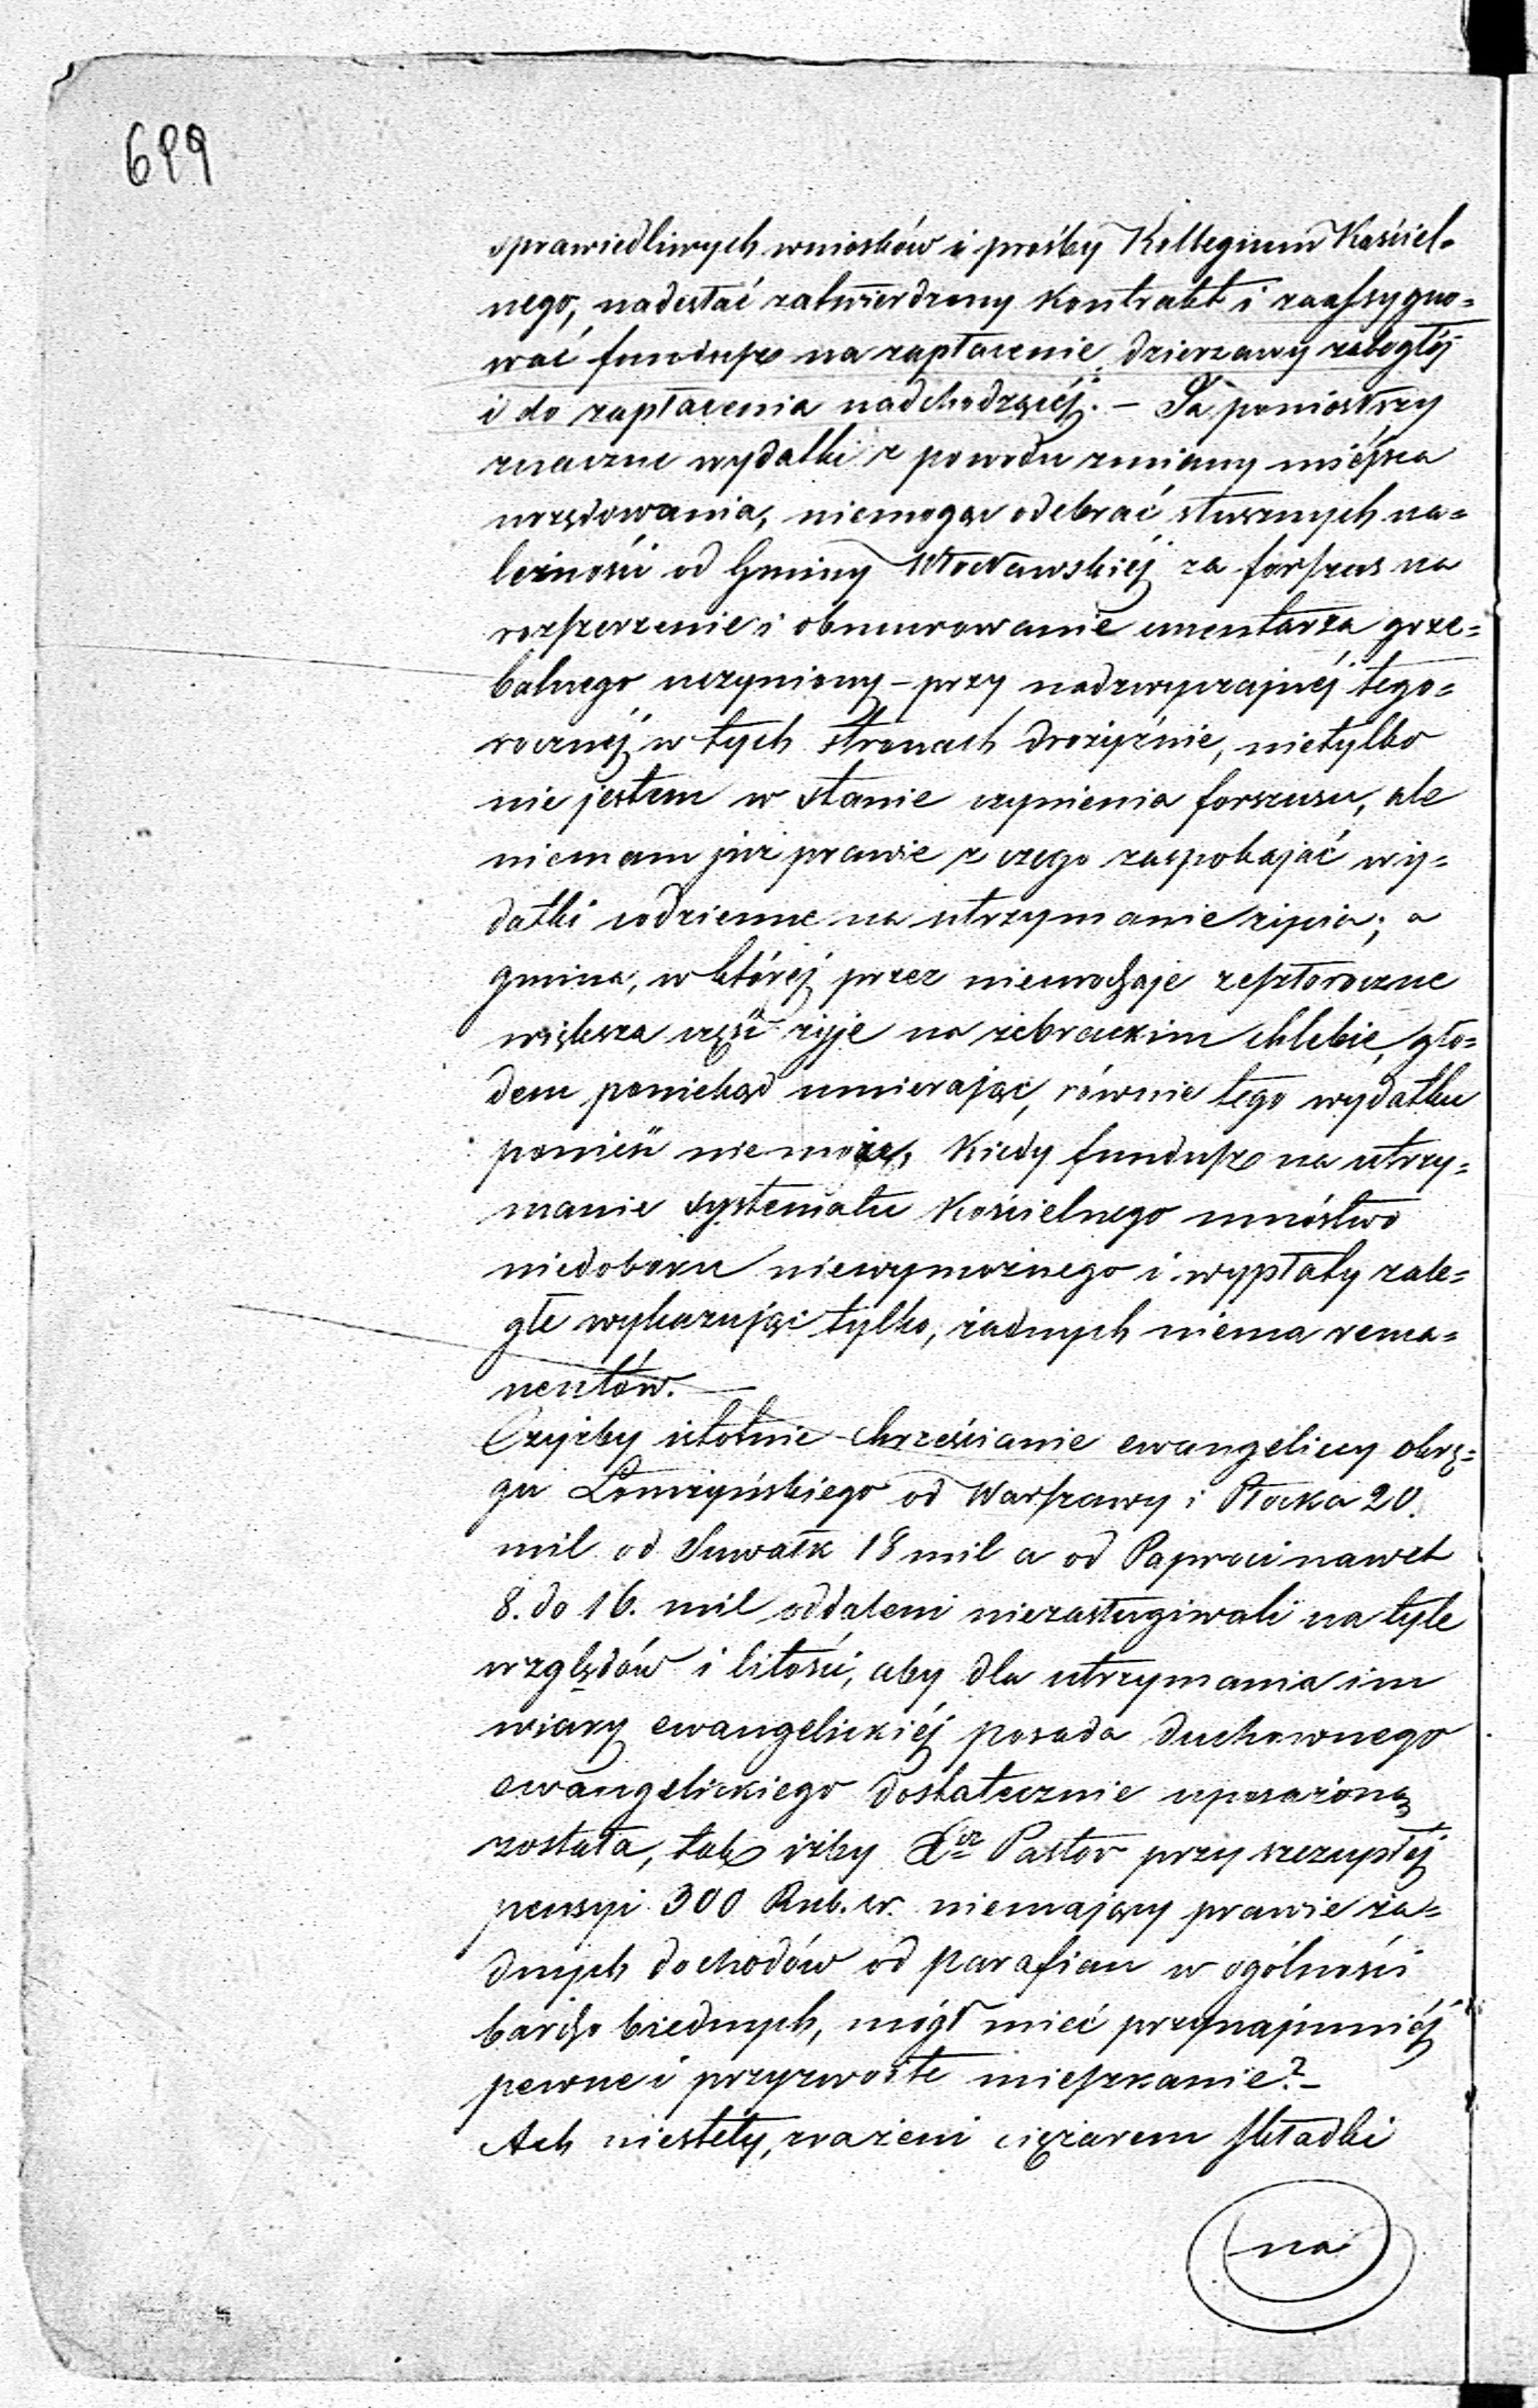 699
sprawiedliwych wniosków i prośby Kollegium Kościel-
nego, nadesłać zatwierdzony kontrakt i zaassygno=
wać fundusz na zapłacenie dzierzawy zaległéj
i do zapłacenia nadchodzącéj. – Ja poniósłszy
znaczne wydatki z powodu zmiany miéjsca
urzędowania, niemogąc odebrać słusznych na=
leżności od Gminy Włocławskiéj za forszus na
rozszerzenie i obmurowanie cmentarza grze=
balnego uczyniony – przy nadzwyczajnéj tego=
rocznéj w tych stronach drożyźnie, nietylko
nie jestem w stanie czynienia forszusu, ale
niemam już prawie z czego zaspokajać wy=
datki codzienne na utrzymanie życia; a
gmina, w któréj przez nieurodzaje zeszłoroczne
większa część żyje na żebrackim chlebie, gło=
dem poniekąd umierając, równie tego wydatku
ponieść nie może, kiedy fundusz na utrzy=
manie systematu kościelnego mnóstwo
niedoboru niewymożnego i wypłaty zale=
głe wykazując tylko, żadnych niema rema=
nentów. —
Czyżby istotnie chrześcianie ewangeliccy okrę=
gu Łomżyńskiego od Warszawy i Płocka 20.
mil od Suwałk 18 mil a od Paproci nawet
8. do 16. mil oddaleni niezasługiwali na tyle
względów i litości, aby dla utrzymania im
wiary ewangelickiéj posada duchownego
ewangelickiego dostatecznie uposażoną
została, tak iżby Xdz Pastor przy szczupłéj
pensyi 300 Rub. sr. niemający prawie ża=
dnych dochodów od parafian w ogólności
bardzo biednych, mógł mieć przynajmniéj
pewne i przyzwoite mieszkanie? –
Ach niestety, zrażeni ciężarem składki
na